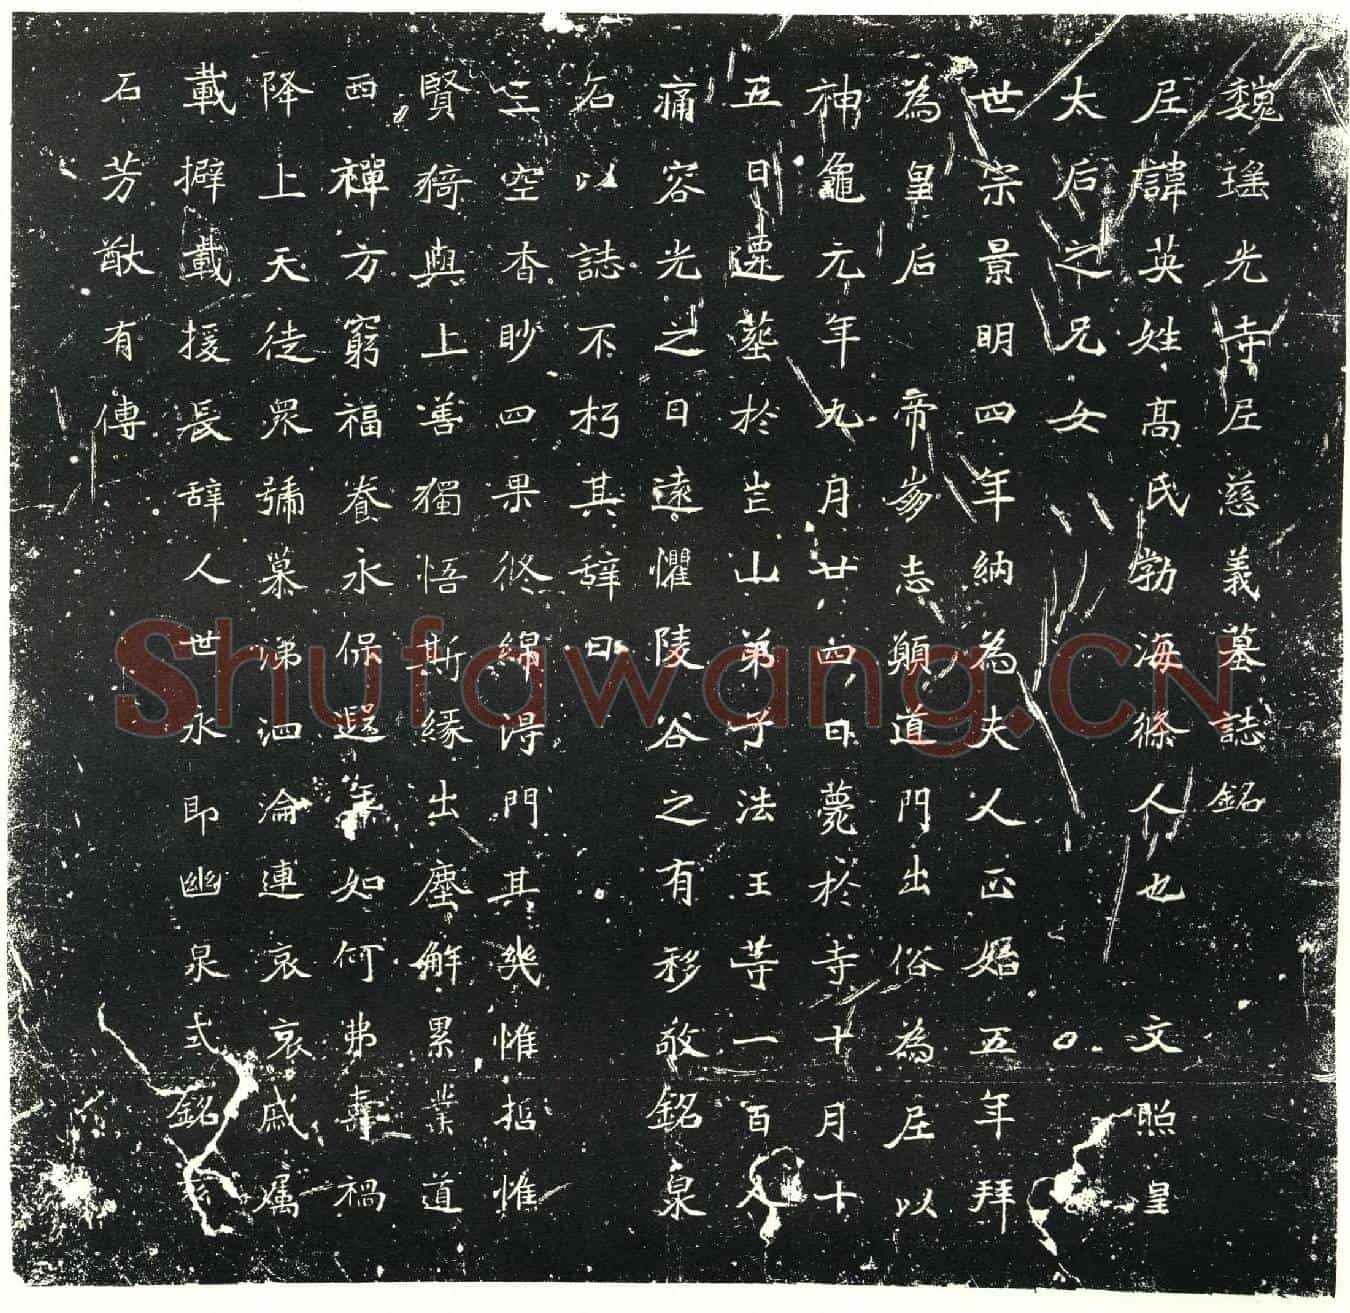 魏瑤光寺尼慈義墓誌銘
尼諱英姓高氏勃海條人也 文照皇
太后之兄女
世宗景明四年納為夫人正始五年拜
為皇后 帝崩志願道門出俗為尼以
神龜元年九月廿四日薨於寺十月十
五日遷葬於芒山弟子法王等一百人
痛容光之日遠懼陵谷之有移敬銘泉
石以誌不朽其辞曰
三空杳眇四果攸綿得門其幾惟哲惟
賢猗與上善獨悟斯緣出塵解累業道
西禪方窮福養永保遐年如何弗壽禍
降上天徒眾號慕涕泗淪連哀哀戚屬
載擗載援長辞人世永即幽泉式銘玄
石芳猷有傳
Shufawang.CN